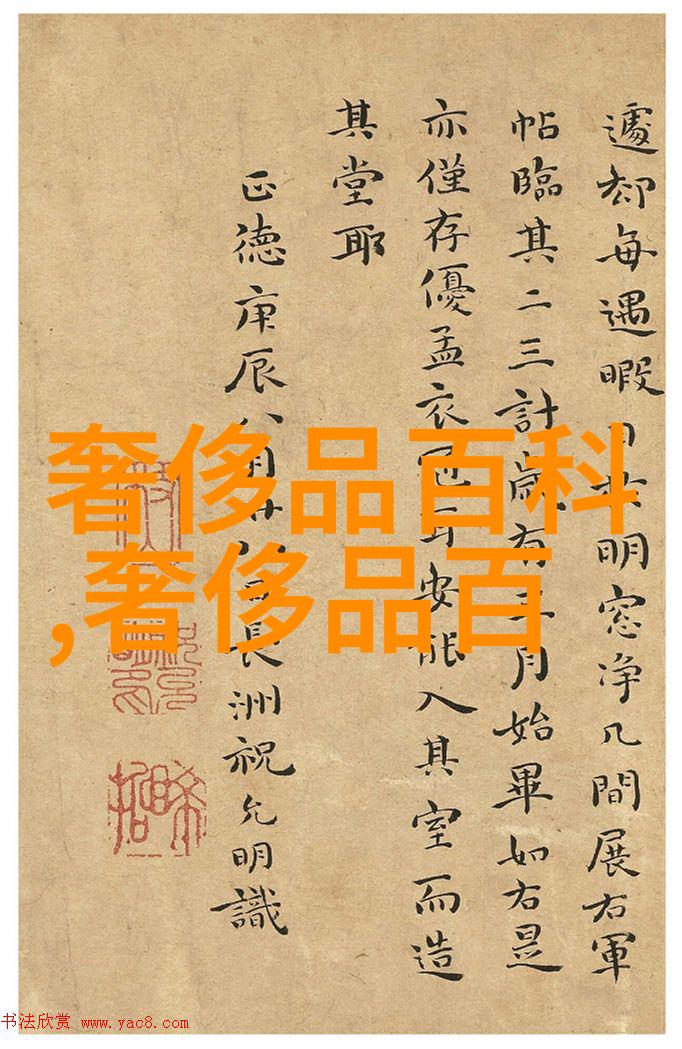 遽却每遇暇日於明窓净几間展右軍
帖臨其二三計歲有三月始畢如右是
亦僅存優孟衣冠耳安能入其室而造
其堂耶
正德庚辰八月廿日長洲祝允明識
奢侈品百科
,奢侈品百
书法欣赏 www.yac8.com